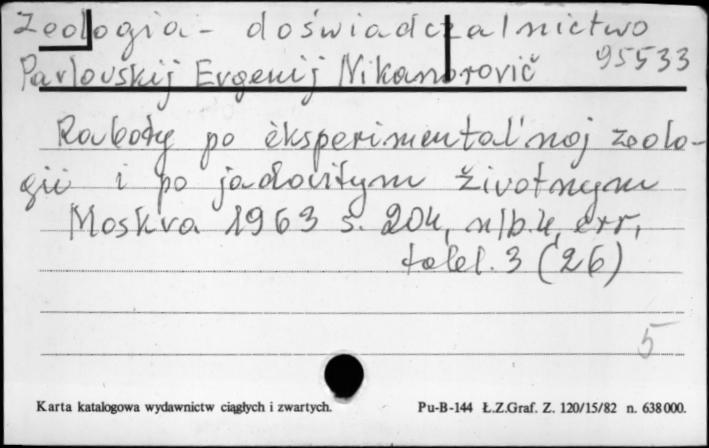 Zoologia - doświadczalnictwo
95533
Pavlovskij Evgenij Nikanorovič
Raboty po èksperimental'noj zoolo-
gii i po jadovitym životnym
Moskva 1963 s. 204, nlb. 4, err,
tabl. 3 (26)
5
Karta katalogowa wydawnictw ciągłych i zwartych.
Pu-B-144 Ł.Z.Graf. Z. 120/15/82 n. 638000.